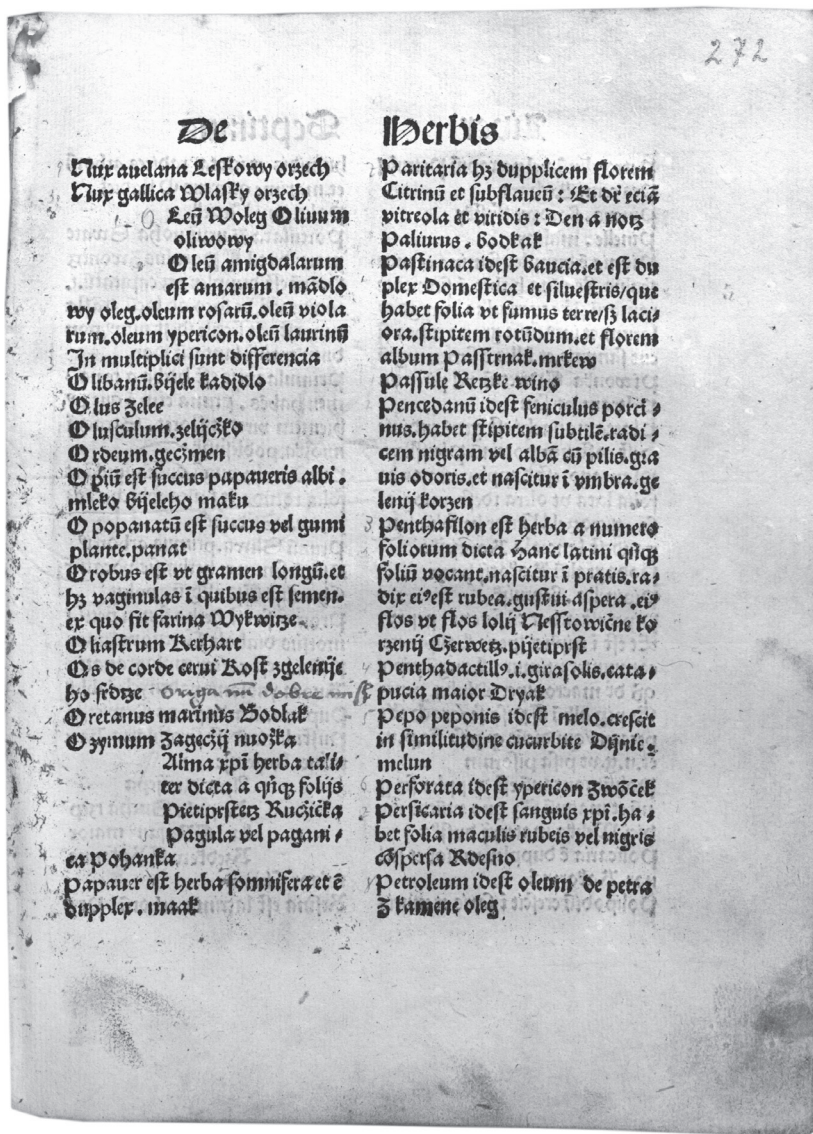 272
De Herbis
Nux auelana Leskowy orzech
Nux gallica Wlasky orzech
Leū Woleg Oliuum
oliwowy
Oleū amigdalarum
est amarum . mādlo
wy oleg.oleum rosarū.oleū viola
rum.oleum ypericon.oleū laurinū
In multiplici sunt differencia
Olibanū.bijele kadidlo
Olus Zelee
Olusculum.zelijcžko
Ordeum.geczmen
Opiū est succus papaueris albi .
mleko bijeleho maku
Opopanatū est succus vel gumi
plante.panat
Orobus est vt gramen longū.et
hꝫ vaginulas ī quibus est semen.
ex quo fit farina Wykwitze
Oliastrum Kerhart
Os de corde cerui Kost zgelenije
ho srdtze
Oretanus marinus Bodlak
Ozymum Zageczij nuožka
Alma xpī herba tali
ter dicta a qn̄qꝫ folijs
Pietiprstetz Ruczička
Pagula vel pagani ⸗
ca Pohanka
Papauer est herba somnifera et ē
dupplex . maak
Paritaria hꝫ dupplicem florem
Citrinū et subflaueū : Et dr̄ eciā
vitreola et viridis : Den a notz
Paliurus . bodkak
Pastinaca idest baucia.et est du
plex Domestica et siluestris/que
habet folia vt fumus terre/sꝫ laci⸗
ora.stipitem rotūdum.et florem
album Passtrnak.mrkew
Passule Retzke wino
Pencedanū idest feniculus porci ⸗
nus.habet stipitem subtilē.radi ⸗
cem nigram vel albā cū pilis.gra
uis odoris.et nascitur ī vmbra.ge
lenij korzen
Penthafilon est herba a numero
foliorum dicta Hanc latini qn̄qꝫ
foliū vocant.nascitur ī pratis.ra⸗
dix eiꝰ est rubea.gustui aspera .eiꝰ
flos vt flos lolij Nesstowične ko
rzenij Cžerwetz.pijetiprst
Penthadactillꝰ.i.girasolis.cata⸗
pucia maior Dryak
Pepo peponis idest melo.crescit
in similitudine cucurbite Dijnie.
melun
Perforata idest ypericon Zwōček
Persicaria idest sanguis xpī.ha ⸗
bet folia maculis rubeis vel nigris
cōspersa Rdesno
Petroleum idest oleum de petra
Z kamene oleg